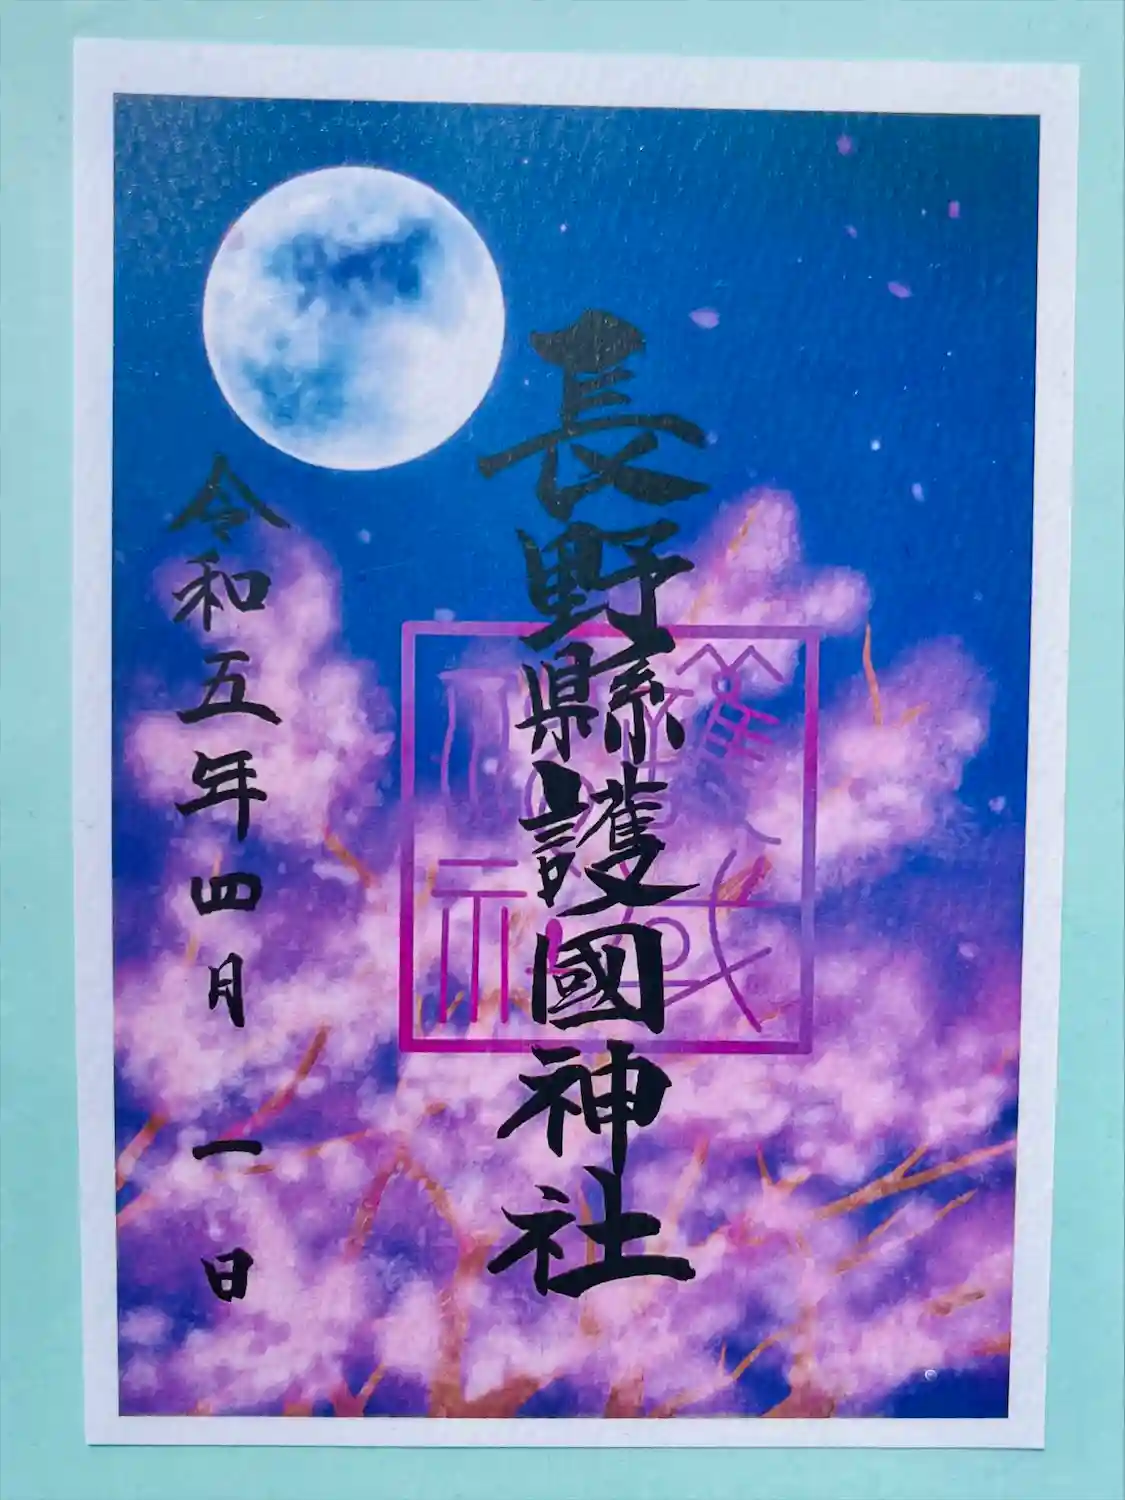 長野縣護國神社
令和五年四月一日